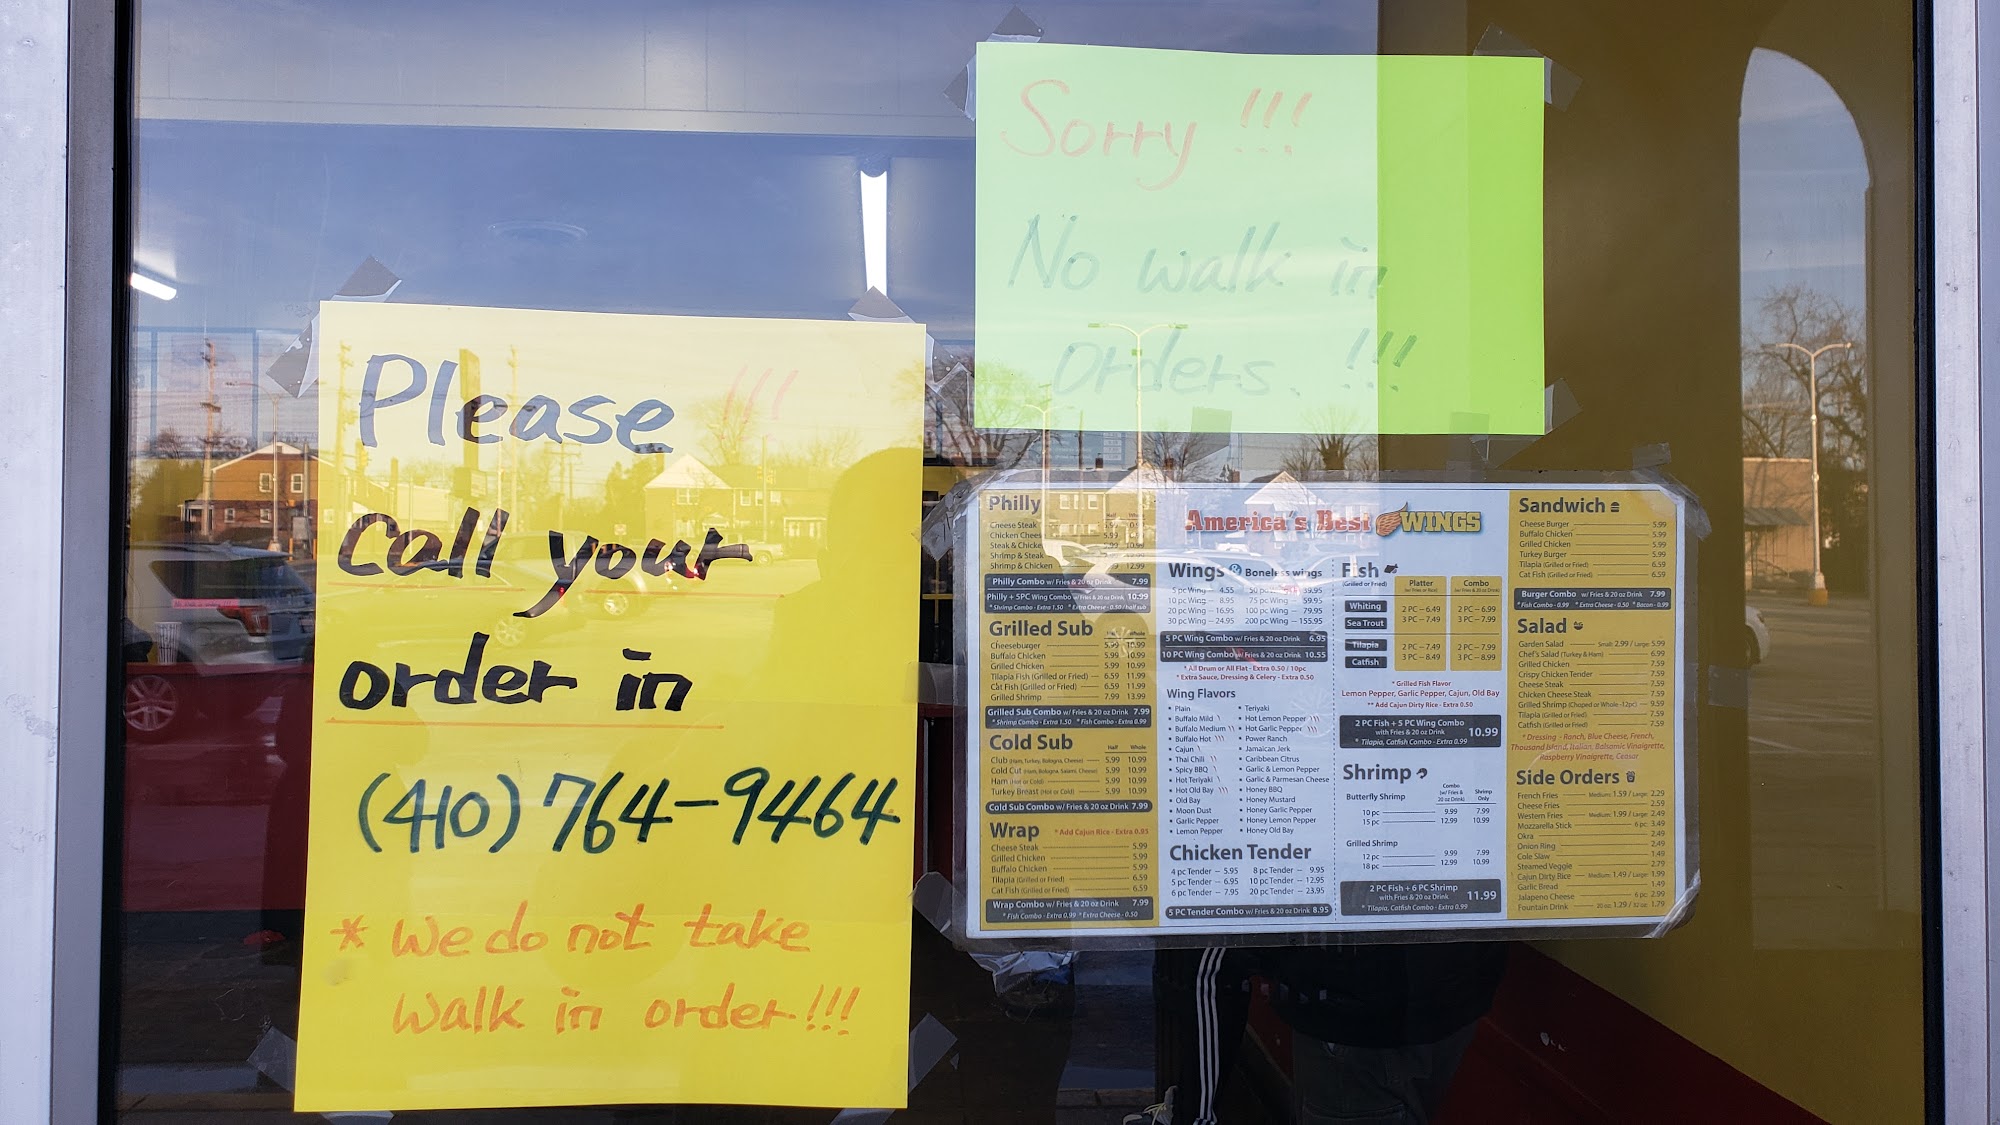 Please !!!
Call your
order in
(410) 764-9464
* We do not take
walk in order!!!
Sorry !!!
No walk in
orders. !!!
America's Best WINGS
Philly
Half Whole
Cheese Steak
Chicken Chees
Steak & Chicke
Shrimp & Steak
Shrimp & Chicken 12.99
Philly Combo w/ Fries & 20 oz Drink 7.99
Philly + 5PC Wing Combo w/ Fries & 20 oz Drink 10.99
* Shrimp Combo - Extra 1.50 * Extra Cheese - 0.50 / half sub
Grilled Sub
Whole
Cheeseburger 5.99 10.99
Buffalo Chicken 5.99 10.99
Grilled Chicken 5.99 10.99
Tilapia Fish (Grilled or Fried) 6.59 11.99
Cat Fish (Grilled or Fried) 6.59 11.99
Grilled Shrimp 7.99 13.99
Grilled Sub Combo w/ Fries & 20 oz Drink 7.99
* Shrimp Combo - Extra 1.50 * Fish Combo - Extra 0.99
Cold Sub
Half Whole
Club (Ham, Turkey, Bologna, Cheese) 5.99 10.99
Cold Cut (Ham, Bologna, Salami, Cheese) 5.99 10.99
Ham (Hot or Cold) 5.99 10.99
Turkey Breast (Hot or Cold) 5.99 10.99
Cold Sub Combo w/ Fries & 20 oz Drink 7.99
Wrap * Add Cajun Rice - Extra 0.95
Cheese Steak 5.99
Grilled Chicken 5.99
Buffalo Chicken 5.99
Tilapia (Grilled or Fried) 6.59
Cat Fish (Grilled or Fried) 6.59
Wrap Combo w/ Fries & 20 oz Drink 7.99
* Fish Combo - Extra 0.99 * Extra Cheese - 0.50
Wings & Boneless wings
5 pc Wing — 4.55 50 pc 39.95
10 pc Wing — 8.95 75 pc Wing — 59.95
20 pc Wing — 16.95 100 pc Wing — 79.95
30 pc Wing — 24.95 200 pc Wing — 155.95
5 PC Wing Combo w/ Fries & 20 oz Drink 6.95
10 PC Wing Combo w/ Fries & 20 oz Drink 10.55
* All Drum or All Flat - Extra 0.50 / 10pc
* Extra Sauce, Dressing & Celery - Extra 0.50
Wing Flavors
• Plain
• Buffalo Mild
• Buffalo Medium
• Buffalo Hot
• Cajun
• Thai Chili
• Spicy BBQ
• Hot Teriyaki
• Hot Old Bay
• Old Bay
• Moon Dust
• Garlic Pepper
• Lemon Pepper
• Teriyaki
• Hot Lemon Pepper
• Hot Garlic Pepper
• Power Ranch
• Jamaican Jerk
• Caribbean Citrus
• Garlic & Lemon Pepper
• Garlic & Parmesan Cheese
• Honey BBQ
• Honey Mustard
• Honey Garlic Pepper
• Honey Lemon Pepper
• Honey Old Bay
Chicken Tender
4 pc Tender — 5.95 8 pc Tender — 9.95
5 pc Tender — 6.95 10 pc Tender — 12.95
6 pc Tender — 7.95 20 pc Tender — 23.95
5 PC Tender Combo w/ Fries & 20 oz Drink 8.95
Fish
(Grilled or Fried)
Platter Combo
(w/ Fries or Rice) (w/ Fries & 20 oz Drink)
Whiting 2 PC — 6.49 2 PC — 6.99
Sea Trout 3 PC — 7.49 3 PC — 7.99
Tilapia 2 PC — 7.49 2 PC — 7.99
Catfish 3 PC — 8.49 3 PC — 8.99
* Grilled Fish Flavor
Lemon Pepper, Garlic Pepper, Cajun, Old Bay
** Add Cajun Dirty Rice - Extra 0.50
2 PC Fish + 5 PC Wing Combo
with Fries & 20 oz Drink 10.99
* Tilapia, Catfish Combo - Extra 0.99
Shrimp
Combo (w/ Fries & 20 oz Drink) Shrimp Only
Butterfly Shrimp
10 pc 9.99 7.99
15 pc 12.99 10.99
Grilled Shrimp
12 pc 9.99 7.99
18 pc 12.99 10.99
2 PC Fish + 6 PC Shrimp
with Fries & 20 oz Drink 11.99
* Tilapia, Catfish Combo - Extra 0.99
Sandwich
Cheese Burger 5.99
Buffalo Chicken 5.99
Grilled Chicken 5.99
Turkey Burger 5.99
Tilapia (Grilled or Fried) 6.59
Cat Fish (Grilled or Fried) 6.59
Burger Combo w/ Fries & 20 oz Drink 7.99
* Fish Combo - 0.99 * Extra Cheese - 0.50 * Bacon - 0.99
Salad
Garden Salad Small: 2.99 / Large: 5.99
Chef's Salad (Turkey & Ham) 6.99
Grilled Chicken 7.59
Crispy Chicken Tender 7.59
Cheese Steak 7.59
Chicken Cheese Steak 7.59
Grilled Shrimp (Chopped or Whole -12pc) 9.59
Tilapia (Grilled or Fried) 7.59
Catfish (Grilled or Fried) 7.59
* Dressing - Ranch, Blue Cheese, French,
Thousand Island, Italian, Balsamic Vinaigrette,
Raspberry Vinaigrette, Ceasar
Side Orders
French Fries Medium: 1.59 / Large: 2.29
Cheese Fries 2.59
Western Fries Medium: 1.99 / Large: 2.49
Mozzarella Stick 6 pc: 3.49
Okra 2.49
Onion Ring 2.49
Cole Slaw 1.49
Steamed Veggie 2.79
Cajun Dirty Rice Medium: 1.49 / Large: 1.99
Garlic Bread 1.49
Jalapeno Cheese 6 pc: 2.99
Fountain Drink 20 oz: 1.29 / 32 oz: 1.79